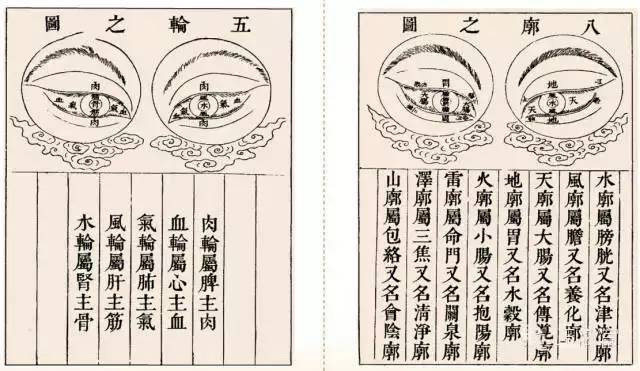 五輪之圖
肉
血
氣
水
氣
血
肉
肉
氣
骨
氣
血
肉
肉輪屬脾主肉
血輪屬心主血
氣輪屬肺主氣
風輪屬肝主筋
水輪屬腎主骨
八廓之圖
地
天
水
天
地
胃
大腸
水廓屬膀胱又名津液廓
風廓屬膽又名養化廓
天廓屬大腸又名傳導廓
地廓屬胃又名水穀廓
火廓屬小腸又名抱陽廓
雷廓屬命門又名關泉廓
澤廓屬三焦又名清淨廓
山廓屬包絡又名會陰廓